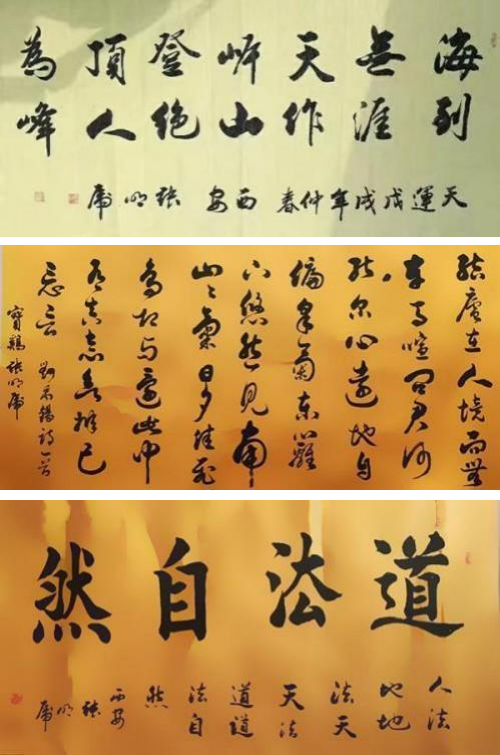 海到
無涯
天作
岸山
登絶
頂人
為峰
天運戊戌年仲春西安張明虎
結廬在人境而無
車馬喧問君何
能尔心遠地自
偏采菊東籬
下悠然見南
山々氣日夕佳飛
鳥相与還此中
有真意欲辨已
忘言 劉禹錫詩一首
寶鷄張明虎
道法自然
人法
地地
法天
天法
道道
法自
然
西安
張明虎